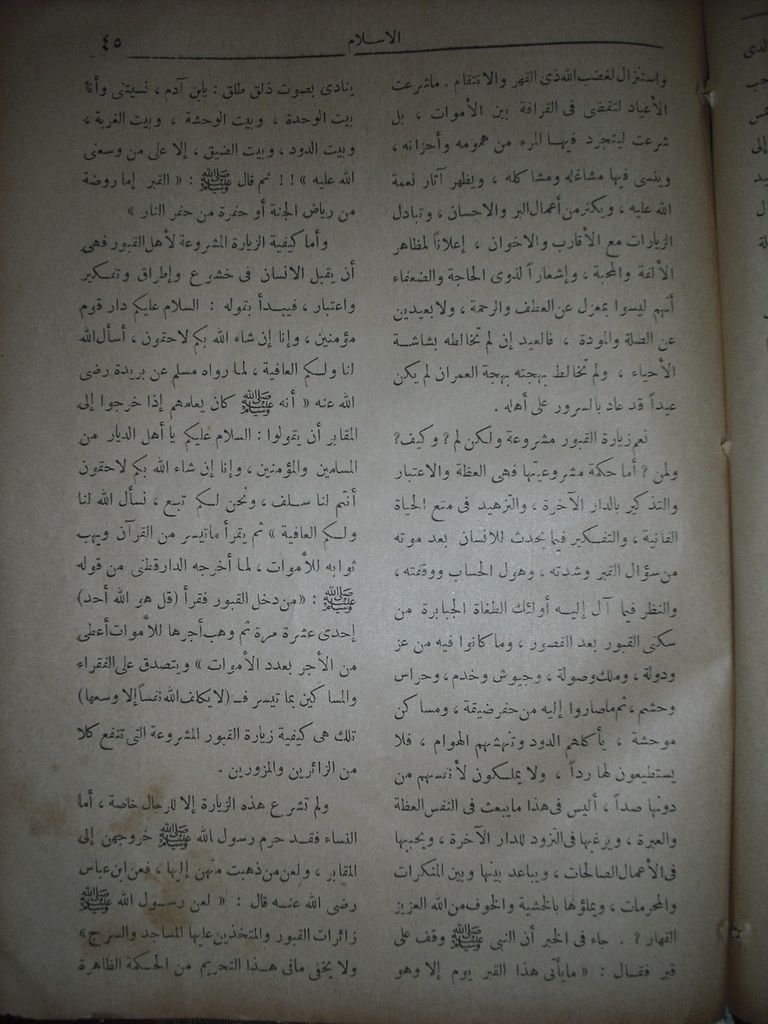 الاسلام
٤٥
واستنزال لغضب الله ذى القهر والانتقام . ماشرعت
الأعياد لتقضى فى القرافة بين الأموات ، بل
شرعت ليتجرد فيها المرء من همومه وأحزانه ،
وينسى فيها مشاغله ومشاكله ، ويظهر آثار نعمة
الله عليه ، ويكثر من أعمال البر والاحسان ، وتبادل
الزيارات مع الأقارب والاخوان ، إعلاناً لمظاهر
الألفة والمحبة ، وإشعاراً لذوى الحاجة والضعفاء
أنهم ليسوا بمعزل عن العطف والرحمة ، ولا بعيدين
عن الصلة والمودة ، فالعيد إن لم تخالطه بشاشة
الأحياء ، ولم تخالط بهجته بهجة العمران لم يكن
عيداً قد عاد بالسرور على أهله .
نعم زيارة القبور مشروعة ولكن لم ? وكيف?
ولمن ? أما حكمة مشروعيتها فهى العظة والاعتبار
والتذكير بالدار الآخرة ، والتزهيد فى متع الحياة
الفانية ، والتفكير فيما يحدث للانسان بعد موته
من سؤال القبر وشدته ، وهول الحساب ووقفته ،
والنظر فيما آل إليه أولئك الطغاة الجبابرة من
سكنى القبور بعد القصور ، وما كانوا فيه من عز
ودولة ، وملك وصولة ، وجيوش وخدم ، وحراس
وحشم ، ثم ماصاروا إليه من حفر ضيقة ، ومساكن
موحشة ، يأكلهم الدود وتنهشهم الهوام ، فلا
يستطيعون لها رداً ، ولا يملكون لأنفسهم من
دونها صداً ، أليس فى هذا ما يبعث فى النفس العظة
والعبرة ، ويرغبها فى التزود للدار الآخرة ، ويحببها
فى الأعمال الصالحات ، ويباعد بينها وبين المنكرات
والمحرمات ، ويملؤها بالخشية والخوف من الله العزيز
القهار ? . جاء فى الخبر أن النبى ﷺ وقف على
قبر فقال : « ما يأتى هذا القبر يوم إلا وهو
ينادى بصوت ذلق طلق : يابن آدم ، نسيتنى وأنا
بيت الوحدة ، وبيت الوحشة ، وبيت الغربة ،
وبيت الدود ، وبيت الضيق ، إلا على من وسعنى
الله عليه » ! ! ثم قال ﷺ : « القبر إما روضة
من رياض الجنة أو حفرة من حفر النار »
وأما كيفية الزيارة المشروعة لأهل القبور فهى
أن يقبل الانسان فى خشوع وإطراق وتفكير
واعتبار ، فيبدأ بقوله : السلام عليكم دار قوم
مؤمنين ، وإنا إن شاء الله بكم لاحقون ، أسأل الله
لنا ولكم العافية ، لما رواه مسلم عن بريدة رضى
الله عنه « أنه ﷺ كان يعلمهم إذا خرجوا إلى
المقابر أن يقولوا : السلام عليكم يا أهل الديار من
المسلمين والمؤمنين ، وإنا إن شاء الله بكم لاحقون
أنتم لنا سلف ، ونحن لكم تبع ، نسأل الله لنا
ولكم العافية » ثم يقرأ ماتيسر من القرآن ويهب
ثوابه للأموات ، لما أخرجه الدارقطنى من قوله
ﷺ : «من دخل القبور فقرأ (قل هو الله أحد)
إحدى عشرة مرة ثم وهب أجرها للأموات أعطى
من الأجر بعدد الأموات » ويتصدق على الفقراء
والمساكين بما تيسر فـ (لا يكلف الله نفساً إلا وسعها)
تلك هى كيفية زيارة القبور المشروعة التى تنفع كلا
من الزائرين والمزورين .
ولم تشرع هذه الزيارة إلا للرجال خاصة ، أما
النساء فقد حرم رسول الله ﷺ خروجهن إلى
المقابر ، ولعن من ذهبت منهن إليها ، فعن ابن عباس
رضى الله عنه قال : « لعن رسول الله ﷺ
زائرات القبور والمتخذين عليها المساجد والسرج»
ولا يخفى مافى هذا التحريم من الحكمة الظاهرة